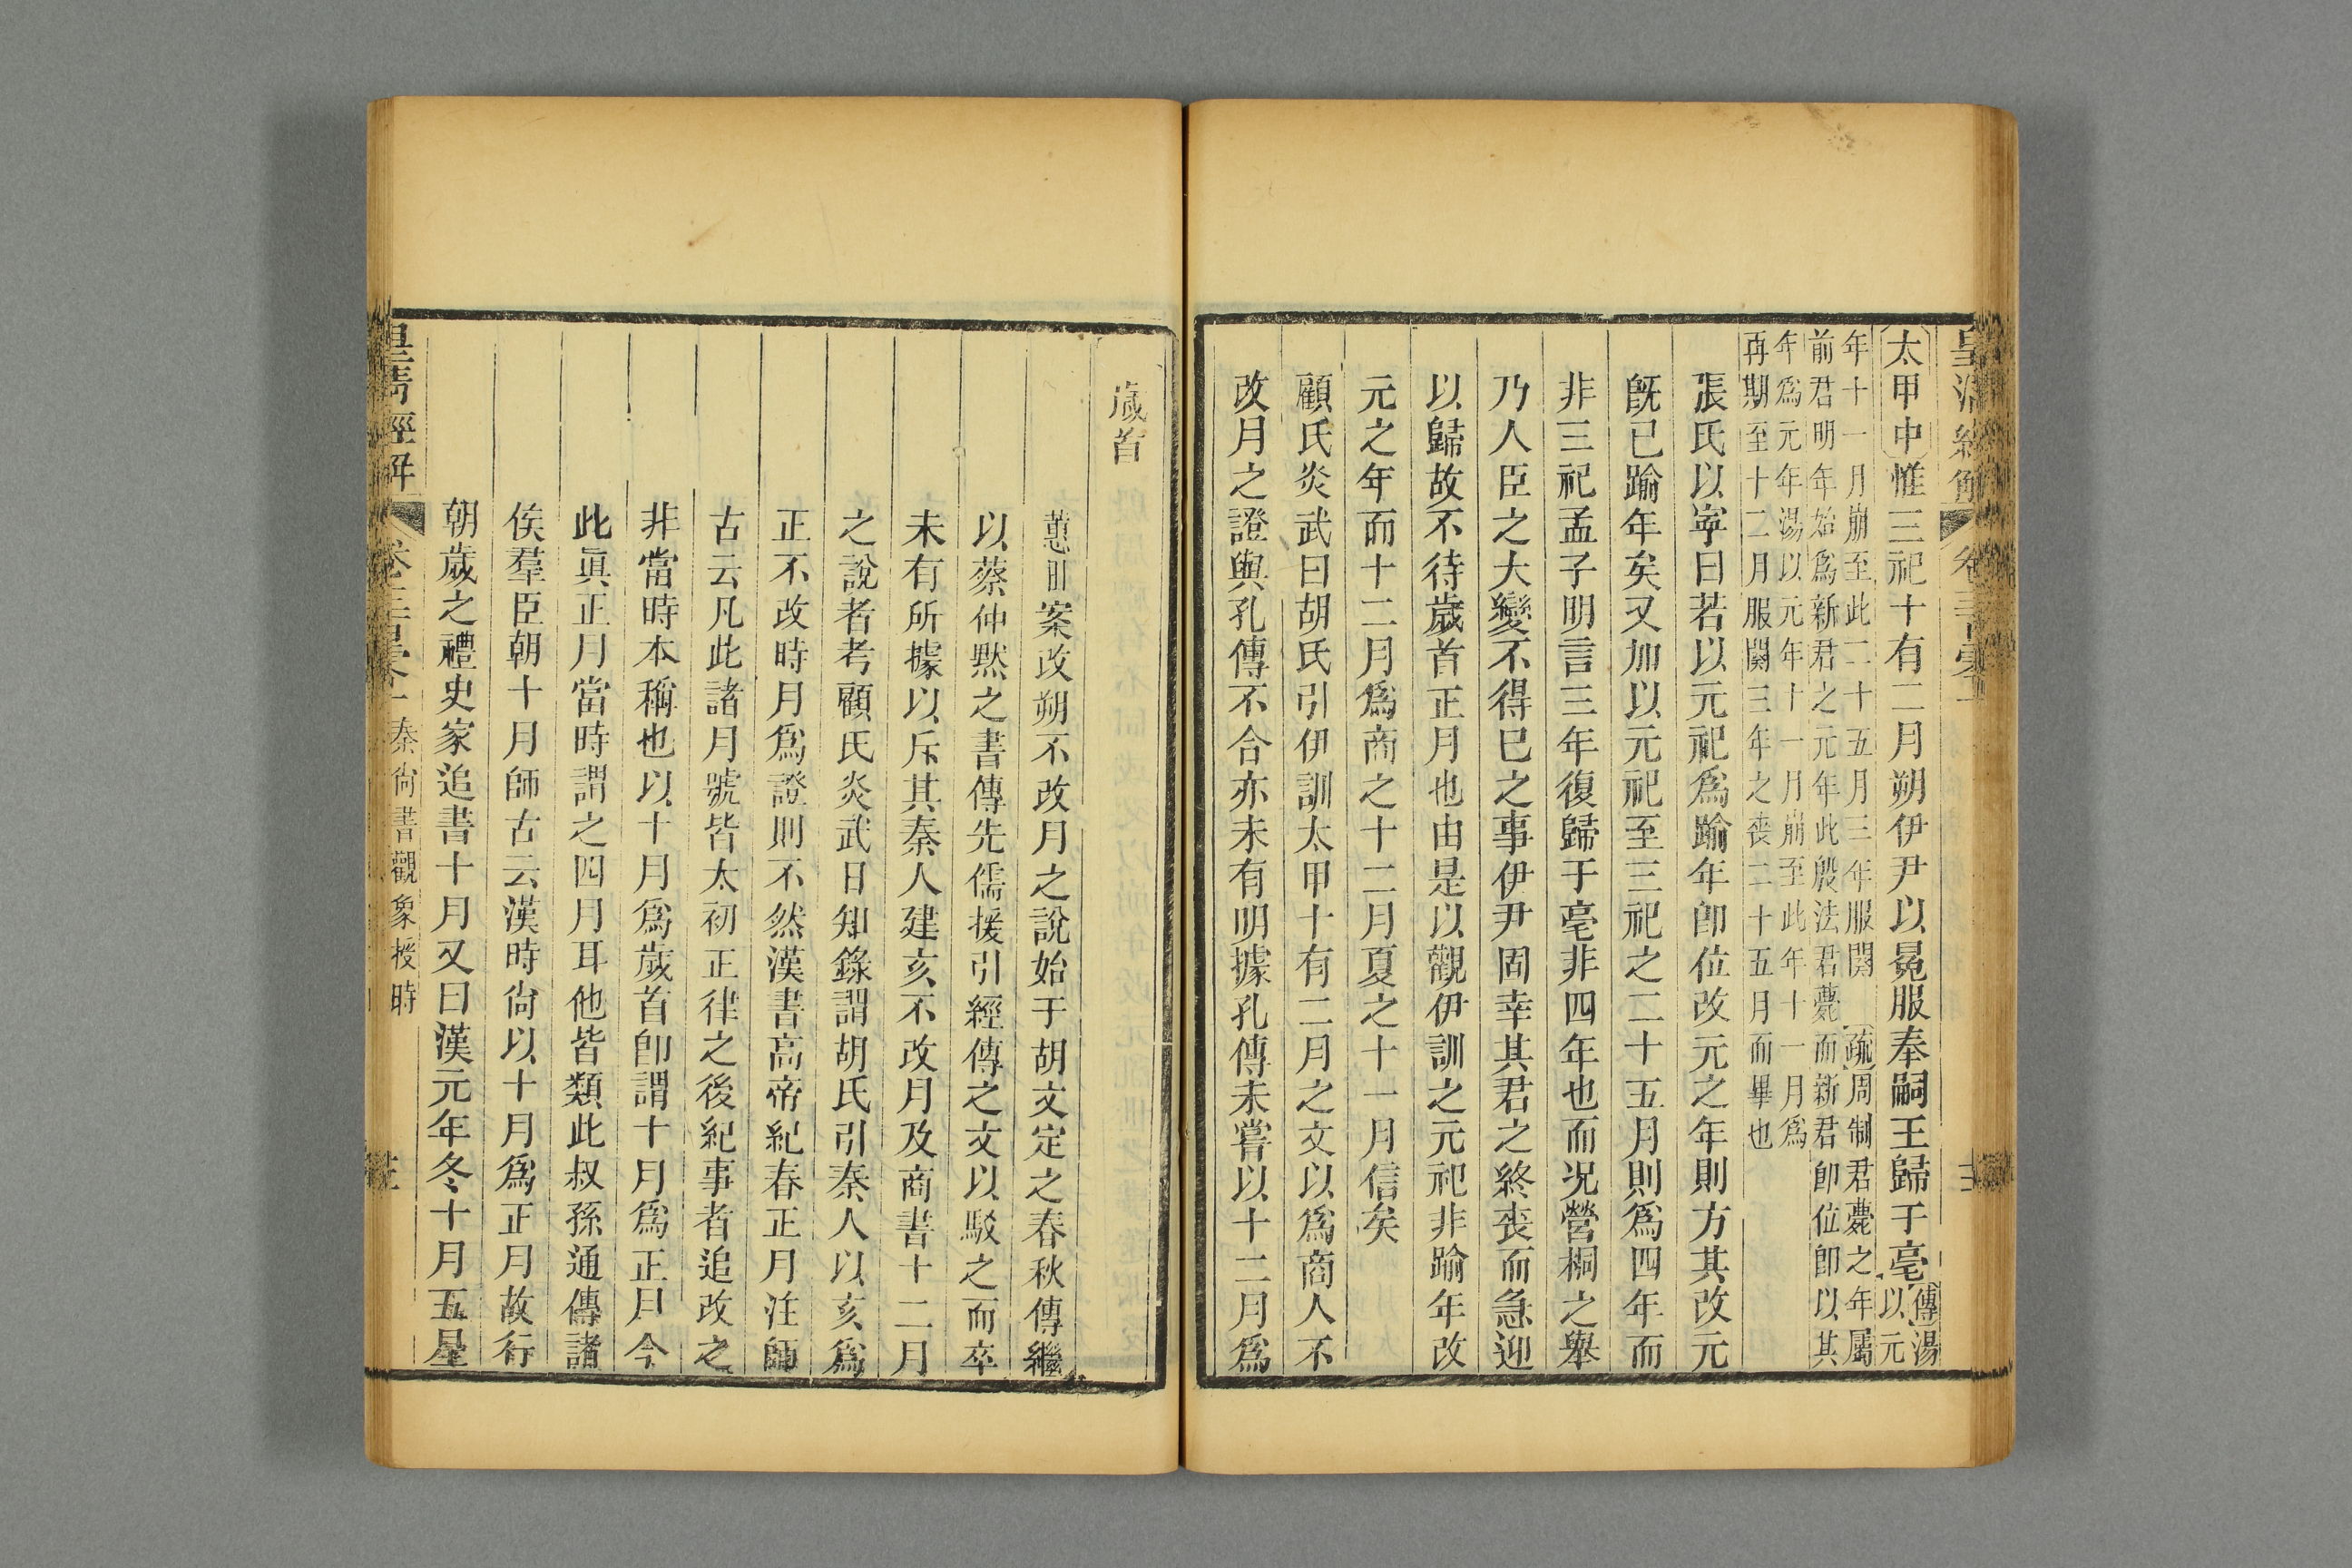 太甲中惟三祀十有二月朔伊尹以冕服奉嗣王歸于亳傳湯以元
年十一月崩至此二十五月三年服闋疏周制君薨之年屬
前君明年始爲新君之元年此殷法君薨而新君卽位卽以其
年爲元年湯以元年十一月崩至此年十一月爲
再期至十二月服闋三年之喪二十五月而畢也
張氏以寧曰若以元祀爲踰年卽位改元之年則方其改元
旣已踰年矣又加以元祀至三祀之二十五月則爲四年而
非三祀孟子明言三年復歸于亳非四年也而况營桐之舉
乃人臣之大變不得已之事伊尹固幸其君之終喪而急迎
以歸故不待歲首正月也由是以觀伊訓之元祀非踰年改
元之年而十二月爲商之十二月夏之十一月信矣
顧氏炎武曰胡氏引伊訓太甲十有二月之文以爲商人不
改月之證與孔傳不合亦未有明據孔傳未嘗以十二月爲
歲首
蕙田案改朔不改月之說始于胡文定之春秋傳繼
以蔡仲黙之書傳先儒援引經傳之文以駁之而卒
未有所據以斥其秦人建亥不改月及商書十二月
之說者考顧氏炎武日知錄謂胡氏引秦人以亥爲
正不改時月爲證則不然漢書高帝紀春正月注師
古云凡此諸月號皆太初正律之後紀事者追改之
非當時本稱也以十月爲歲首卽謂十月爲正月今
此眞正月當時謂之四月耳他皆類此叔孫通傳諸
侯羣臣朝十月師古云漢時尙以十月爲正月故行
朝歲之禮史家追書十月又曰漢元年冬十月五星
皇淸經解
秦尙書觀象授時